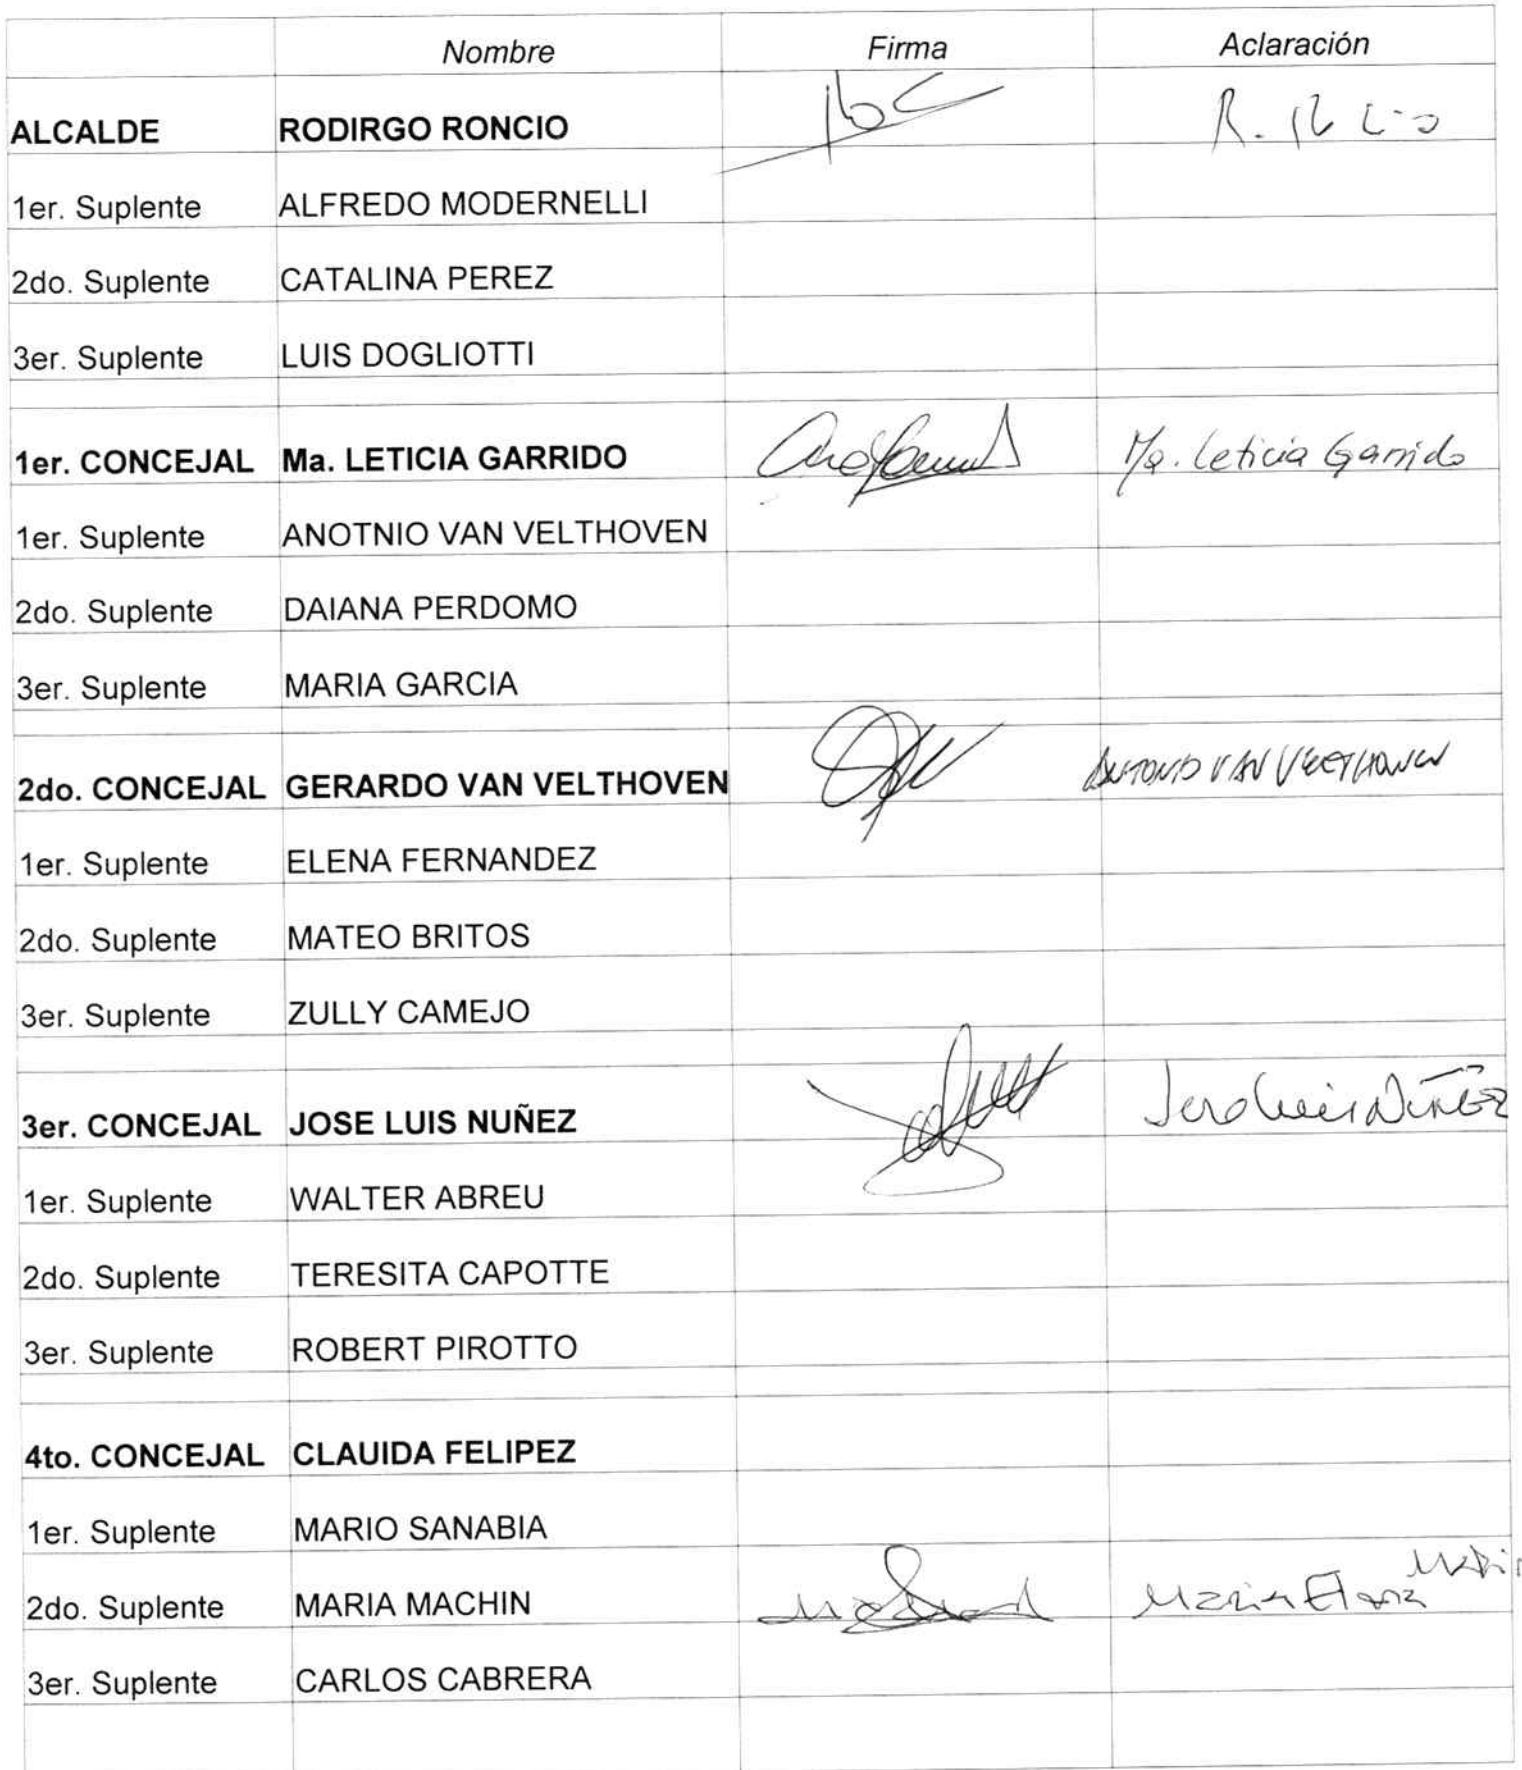 Nombre Firma Aclaración
ALCALDE RODIRGO RONCIO R.
1er. Suplente ALFREDO MODERNELLI
2do. Suplente CATALINA PEREZ
3er. Suplente LUIS DOGLIOTTI
1er. CONCEJAL Ma. LETICIA GARRIDO Ma. Leticia Garrido
1er. Suplente ANOTNIO VAN VELTHOVEN
2do. Suplente DAIANA PERDOMO
3er. Suplente MARIA GARCIA
2do. CONCEJAL GERARDO VAN VELTHOVEN ANTONIO VAN VELTHOVEN
1er. Suplente ELENA FERNANDEZ
2do. Suplente MATEO BRITOS
3er. Suplente ZULLY CAMEJO
3er. CONCEJAL JOSE LUIS NUÑEZ Jose Luis Nuñez
1er. Suplente WALTER ABREU
2do. Suplente TERESITA CAPOTTE
3er. Suplente ROBERT PIROTTO
4to. CONCEJAL CLAUIDA FELIPEZ
1er. Suplente MARIO SANABIA
2do. Suplente MARIA MACHIN Maria Elena
3er. Suplente CARLOS CABRERA